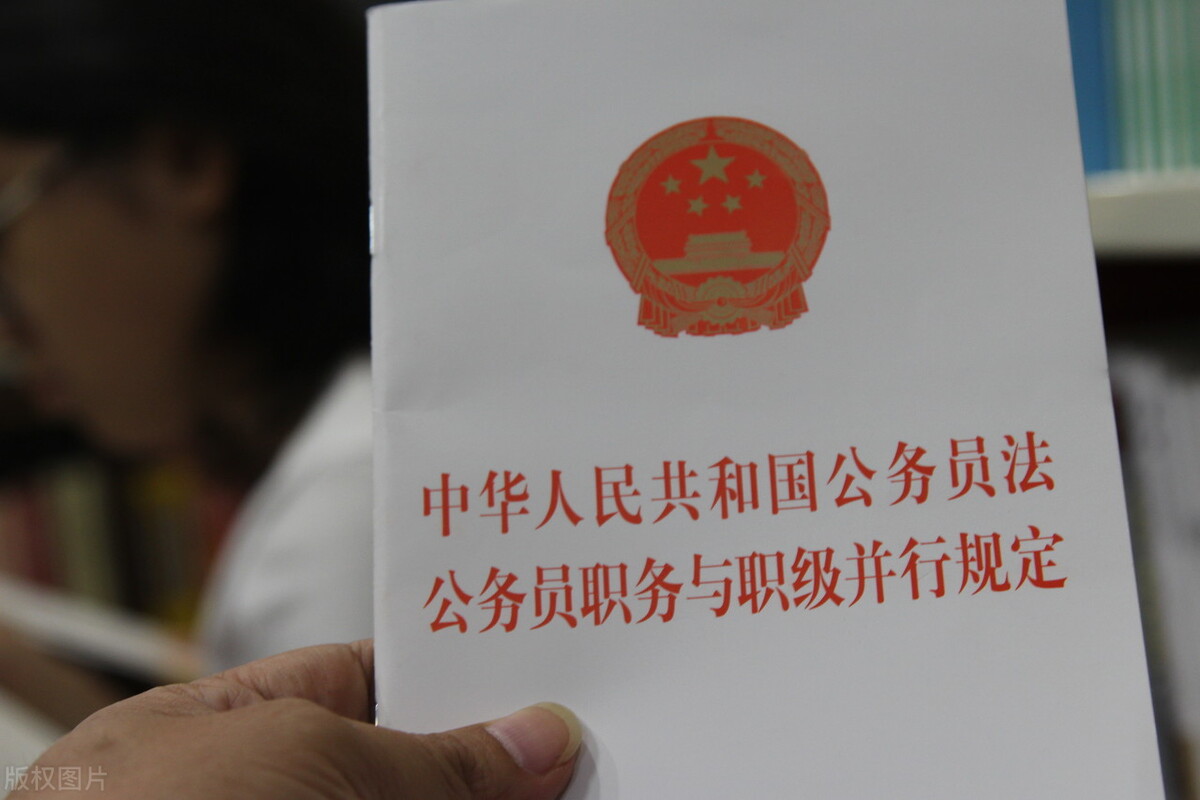 中华人民共和国公务员法
公务员职务与职级并行规定
版权图片